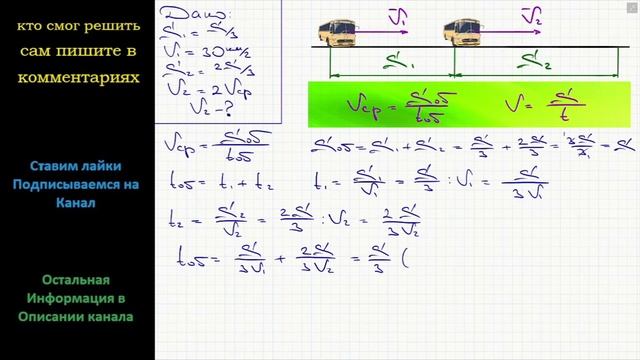 кто смог решить
сам пишите в
комментариях
Ставим лайки
Подписываемся на
Канал
Остальная
Информация в
Описании канала
Дано:
S₁ = S/3
V₁ = 30 км/ч
S₂ = 2S/3
V₂ = 2Vср
V₂ - ?
V₁
V₂
S₁
S₂
Vср = Sоб/tоб V = S/t
Vср = Sоб/tоб Sоб = S₁ + S₂ = S/3 + 2S/3 = 3S/3 = S
tоб = t₁ + t₂ t₁ = S₁/V₁ = S/3 : V₁ = S/3V₁
t₂ = S₂/V₂ = 2S/3 : V₂ = 2S/3V₂
tоб = S/3V₁ + 2S/3V₂ = S/3 (